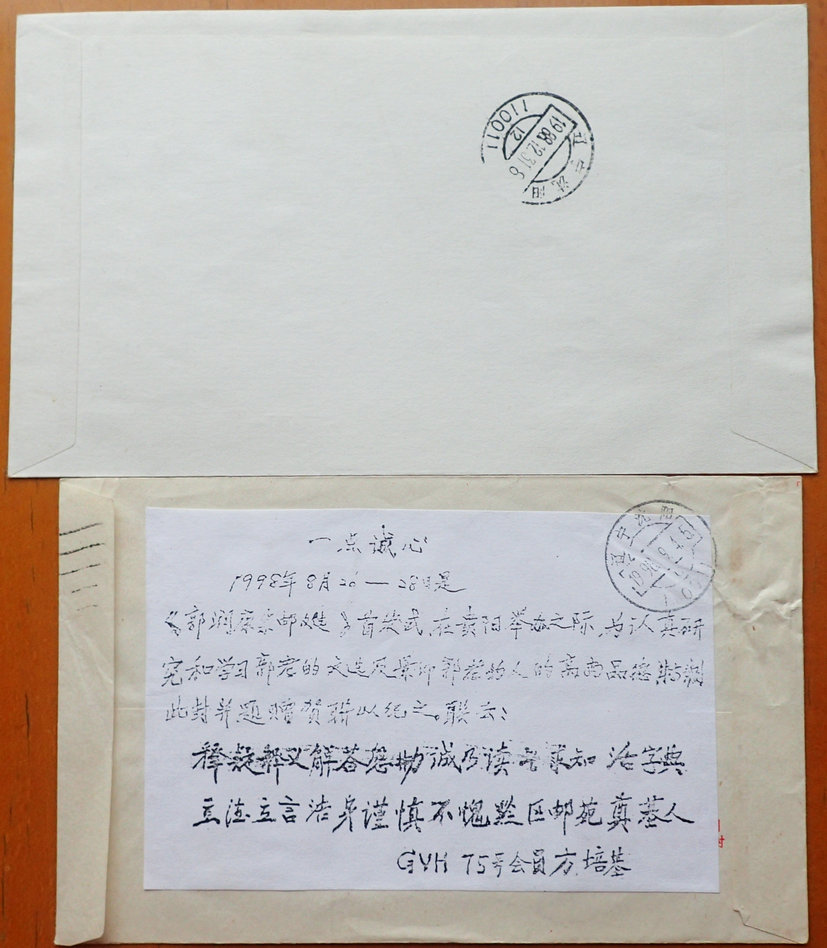 110011
12
1998.12.31.8
辽宁沈阳
辽宁沈阳
一点诚心
1998年8月26—28日是
《郭润康集邮文选》首发式,在贵阳举办之际,为认真研
究和学习郭老的文选及景仰郭老的人的高尚品德,特制
此封并题赠贺联以纪之。联云:
释疑解义解答想助诚乃读者求知 活字典
立德立言洁身谨慎不愧黔区邮苑奠基人
GYH 75号会员方培基